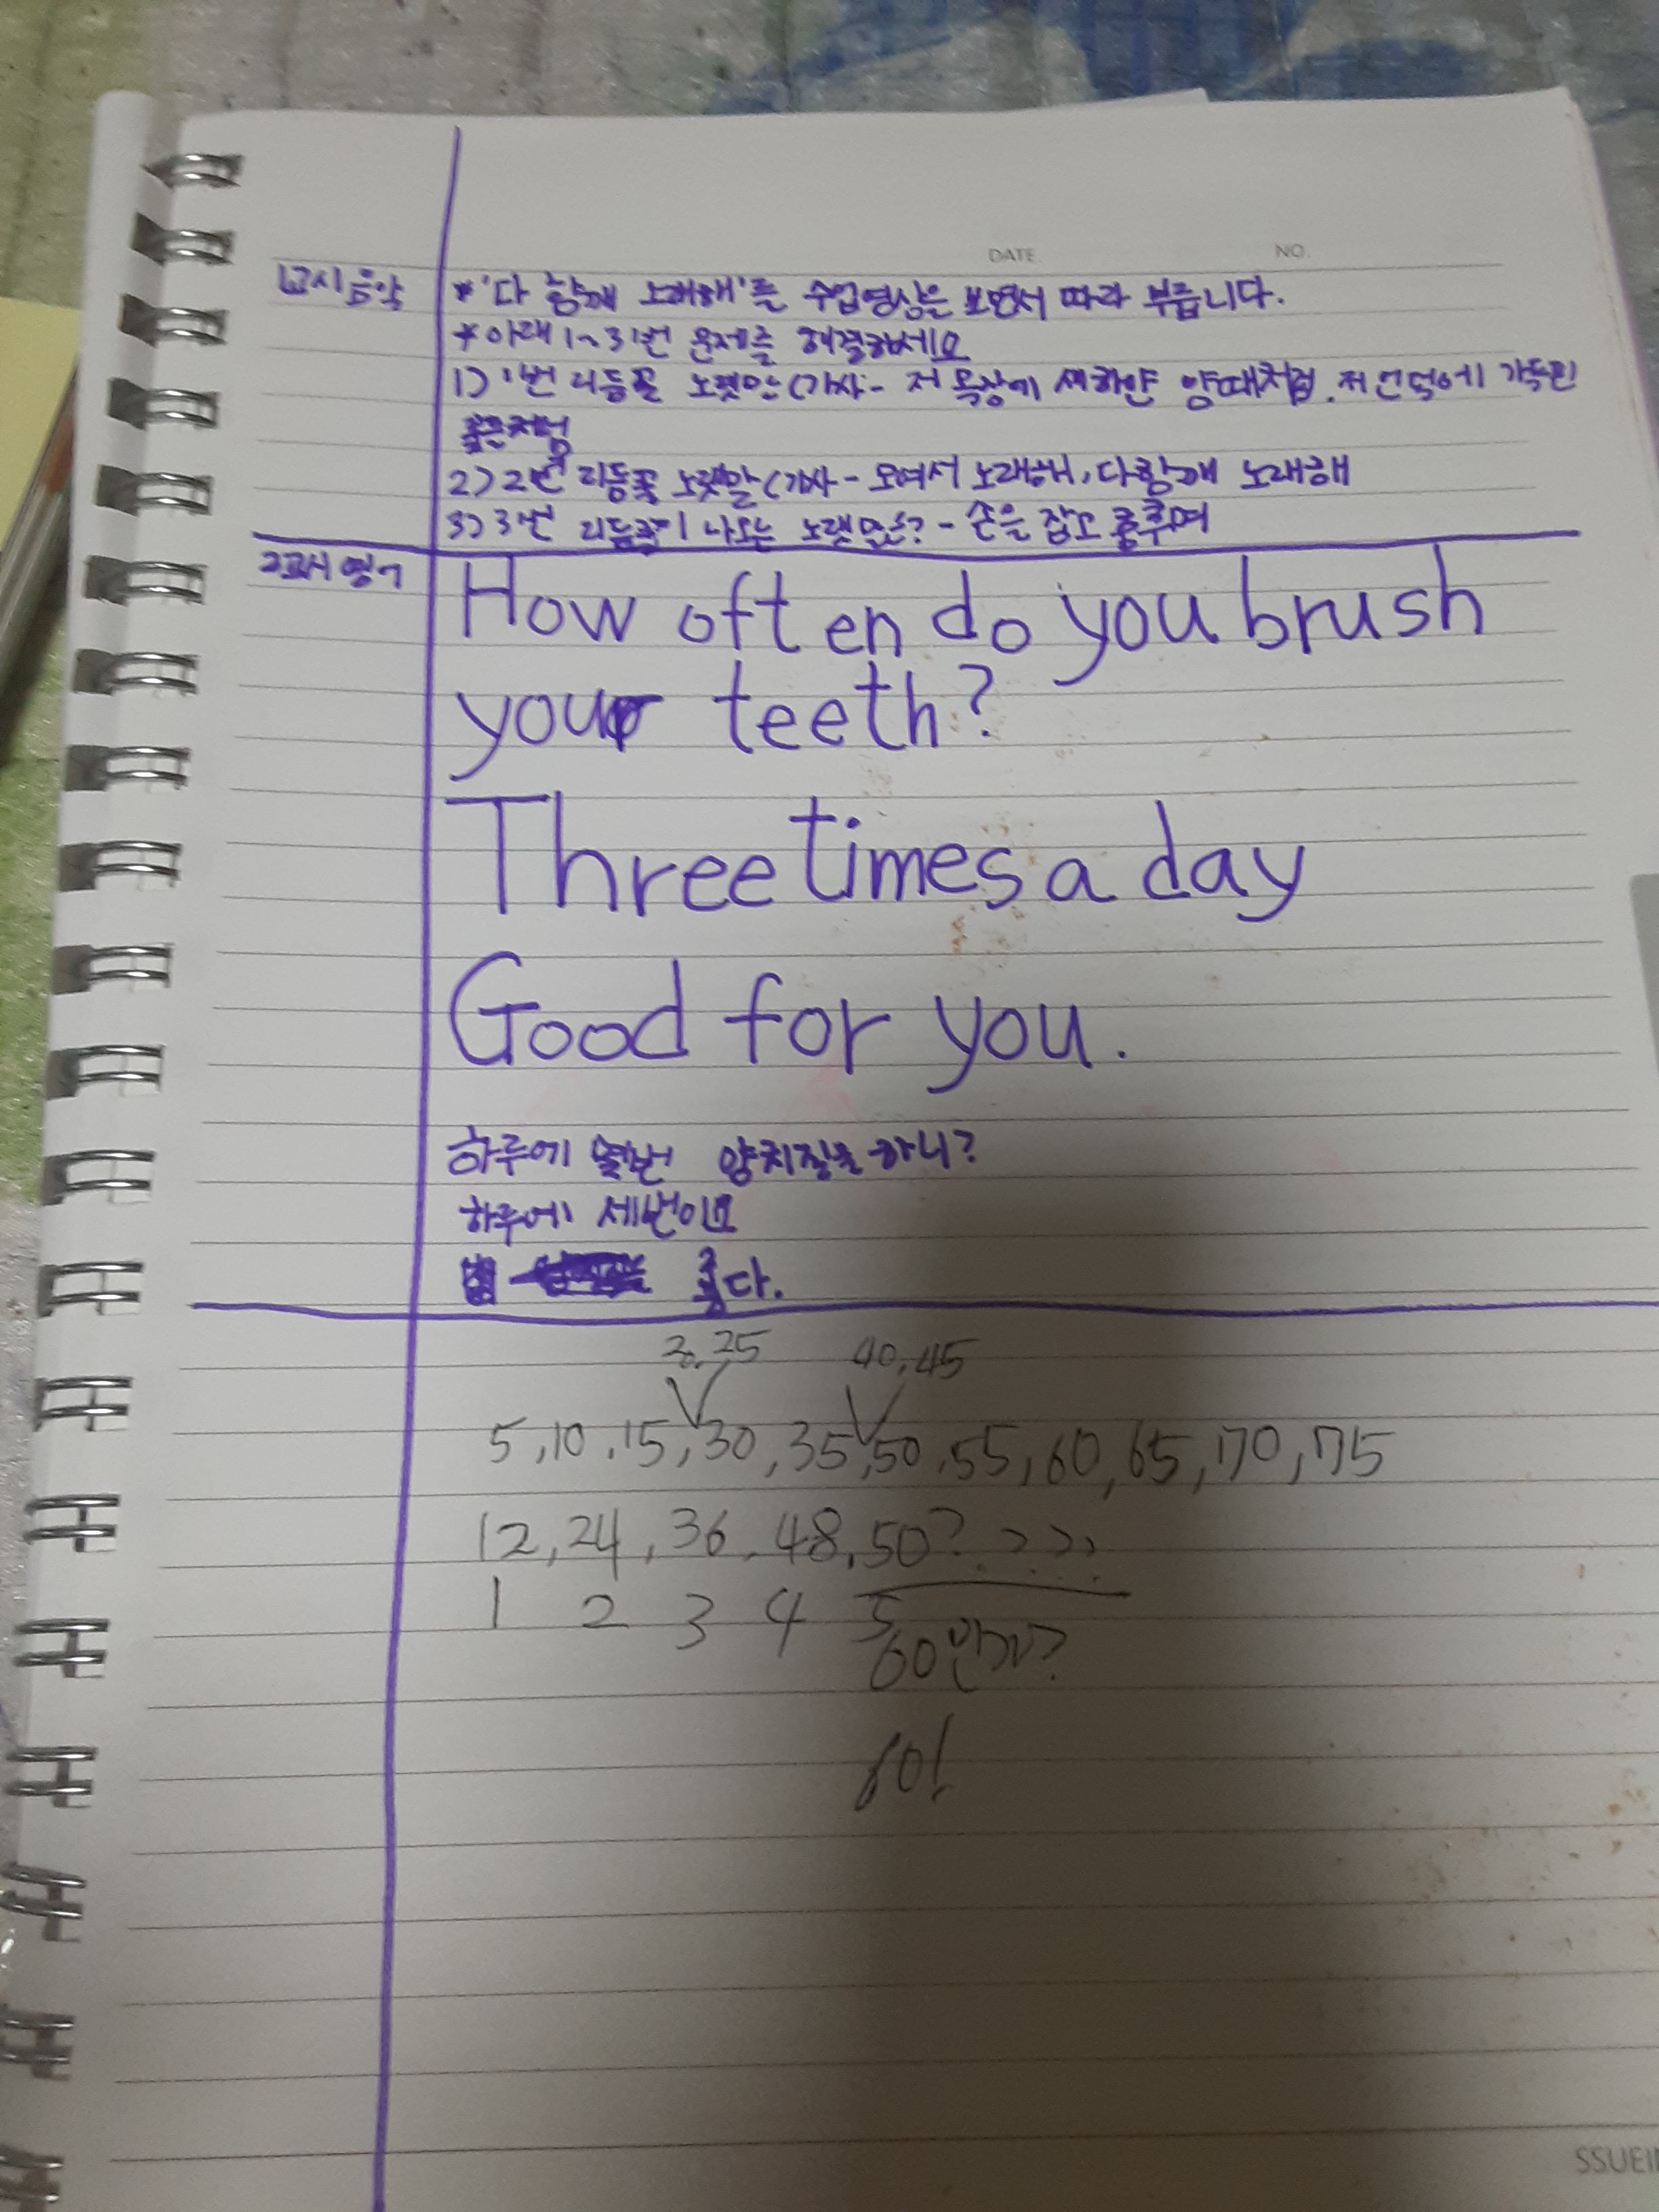 DATE NO.
1교시 음악 * '다 함께 노래해'를 수업영상을 보면서 따라 부릅니다.
* 아래 1~3번 문제를 해결하세요
1) 1번 리듬꼴 노랫말(가사- 저 목장에 새하얀 양떼처럼. 저 언덕에 가득핀
꽃처럼
2) 2번 리듬꼴 노랫말(가사- 모여서 노래해, 다함께 노래해
3) 3번 리듬꼴이 나오는 노랫말은? - 손을 잡고 춤추며
2교시 영어 How often do you brush
your teeth?
Three times a day
Good for you.
하루에 몇번 양치질을 하니?
하루에 세번이요
좋다.
20, 25 40, 45
5, 10, 15, 30, 35, 50, 55, 60, 65, 70, 75
12, 24, 36, 48, 50?
1 2 3 4 5
60인가?
60!
SSUEI